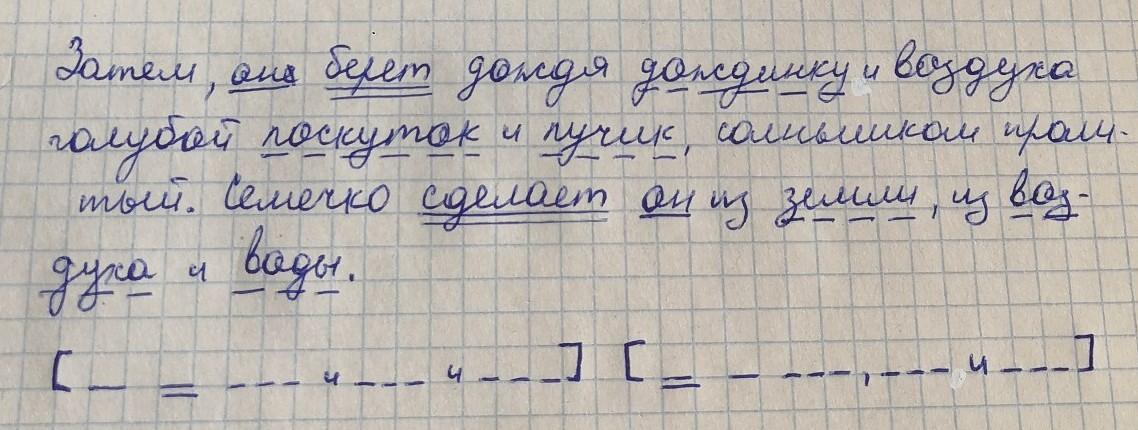 Затем, она берет дождя дождинку и воздуха
голубой лоскуток и лучик, солнышком проли-
тый. Семечко сделает он из земли, из воз-
духа и воды.
[— = --- и --- и ---] [= — ---, --- и ---]